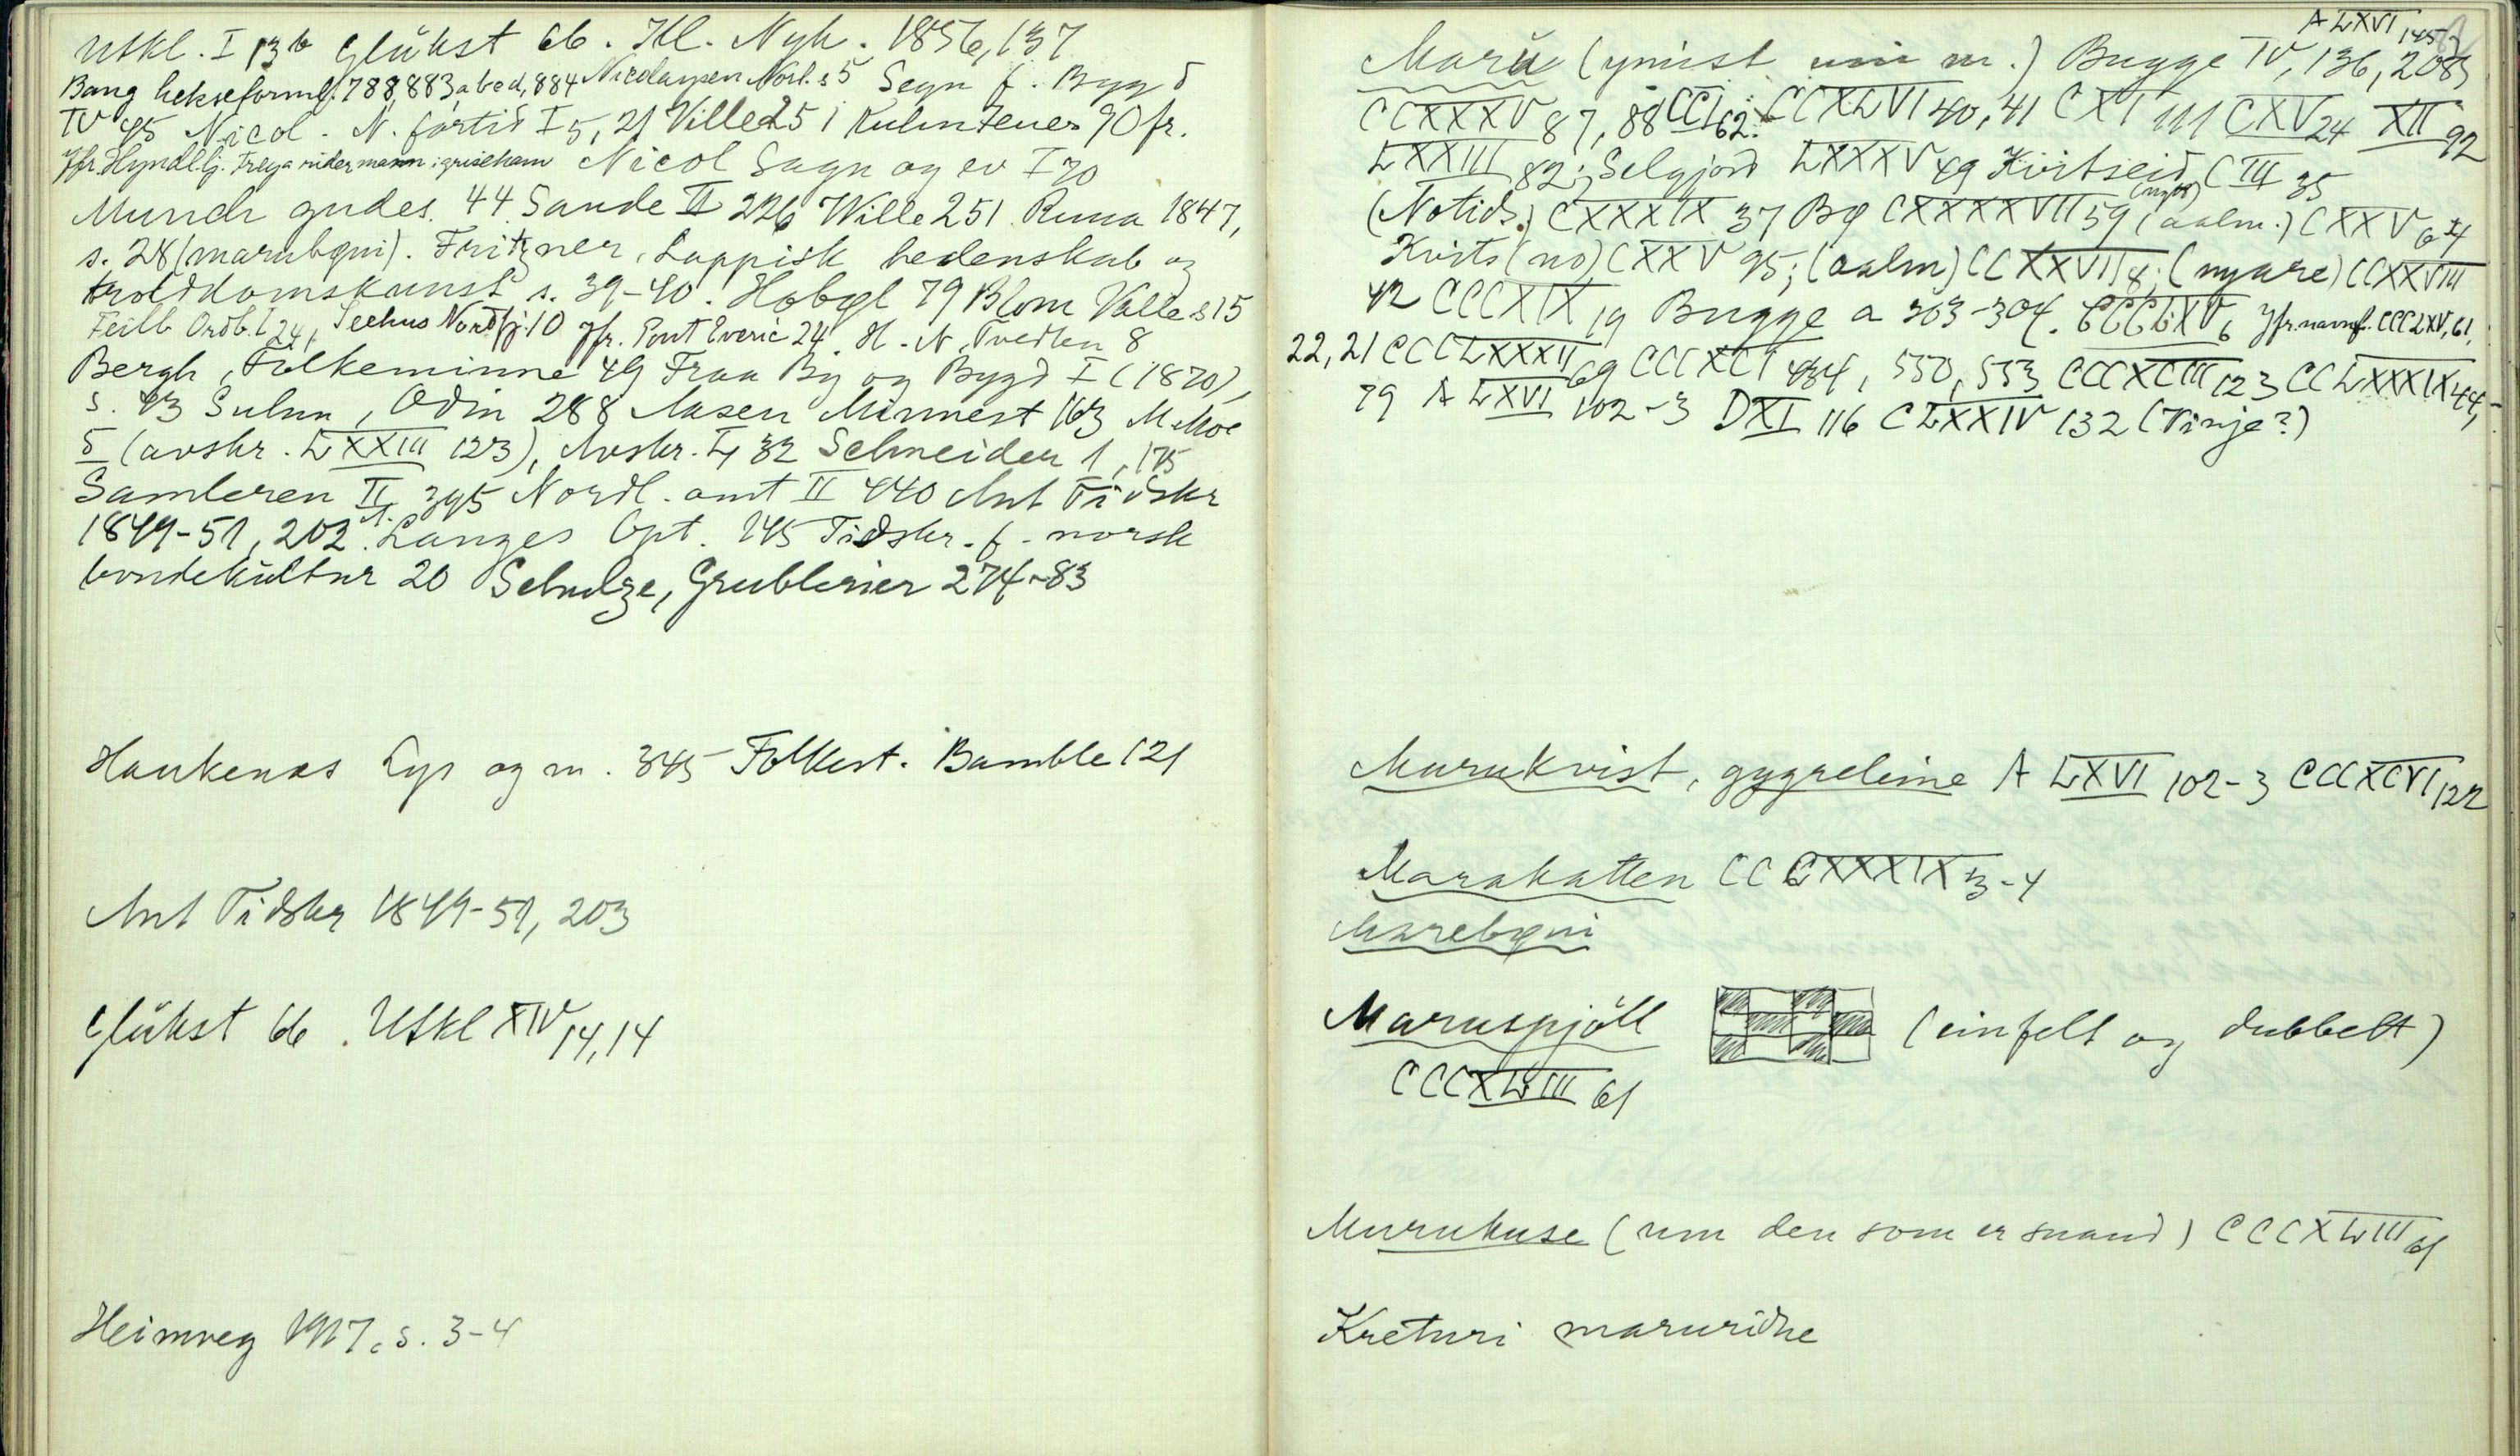 Utskl. I 136 Glükst 66. Kl. Nyh. 1856, 137
Bang hekseforml. 788, 883 abcd, 884 Nicolaysen Norl. s 5 Segn f. Bygd
IV 45 Nicol. N. fortid I 5, 21 Wille 251 Kuhn Feuer 90 fr.
Jfr. Hyndlelj. Freya rider mann i griseham Nicol Sagn og ev I 70
Munch gudes. 44 Sande II 226 Wille 251 Runa 1847,
s. 28 (marubqni). Fritzner, Lappisk hedenskab og
trolddomskunst s. 39-40. Hobgl 79 Blom Valle s 15
Feilb Ordb. I 24, Nordfj. 10 Jfr. 24 H. N. Tvedten 8
Bergh, Folkeminne 49 Fraa By og Bygd I (1870),
s. 43 Suhm, Odin 288 Aasen Minnest 163 M. Moe
5 (avskr. LXXIII 123), Avskr. I, 32 Schneider 1, 175
Samleren II 395 Nordl. amt II 440 Ant Tidskr
1849-51, 202. Langes Opt. 145 Tidskr. f. norsk
bondekultur 20 Schulze, Grublerier 274-83
Haukenæs Lys og m. 345 Folkest. Bamble 121
Ant Tidskr 1849-51, 203
Glükst 66. Utskl XIV 14, 14
Heimveg 1917, s. 3-4
A LXVI 145
Maru (ymist um m.) Bugge IV, 136, 208
CCXXXV 87, 88 CCI 62. CCXLVI 40, 41 CXI 111 CXV 24 XII 92
LXXIII 82; Selgjord LXXXV 49 Kvitseid CIII 35
(Notids.) CXXXIX 37 Bø CXXXXVII 59 (aalm.) CXXV 64
Kvits (no) CXXV 95; (aalm) CCXXVII 8; (nyare) CCXXVIII
42 CCCXIX 19 Bugge a 303-304. CCCLXV 6 Jfr. CCCLXV, 61,
22, 21 CCCLXXXII 69 CCCXCI 484, 550, 553 CCCXCIII 123 CCLXXXIX 44,
79 A LXVI 102-3 DXI 116 CLXXIV 132 (Vinje?)
Marukvist, gygreleime A LXVI 102-3 CCCXCVI 122
Marakatten CCCXXXIX 3-4
Marebqni
Maruspjöll (einfelt og dubbelt)
CCCXLVIII 61
Murukuse (um den som er snaud) CCCXLVIII 61
Kreturi maruridne